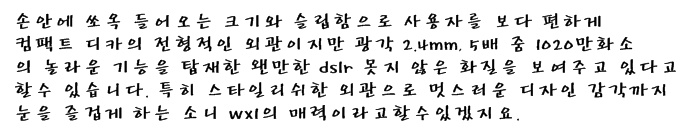 손안에 쏘옥 들어오는 크기와 슬립함으로 사용자를 보다 편하게
컴팩트 디카의 전형적인 외관이지만 광각 2.4mm, 5배 줌 1020만화소
의 놀라운 기능을 탑재한 왠만한 dslr 못지 않은 화질을 보여주고 있다고
할수 있습니다. 특히 스타일리쉬한 외관으로 멋스러운 디자인 감각까지
눈을 즐겁게 하는 소니 wx1의 매력이라고할수있겠지요.